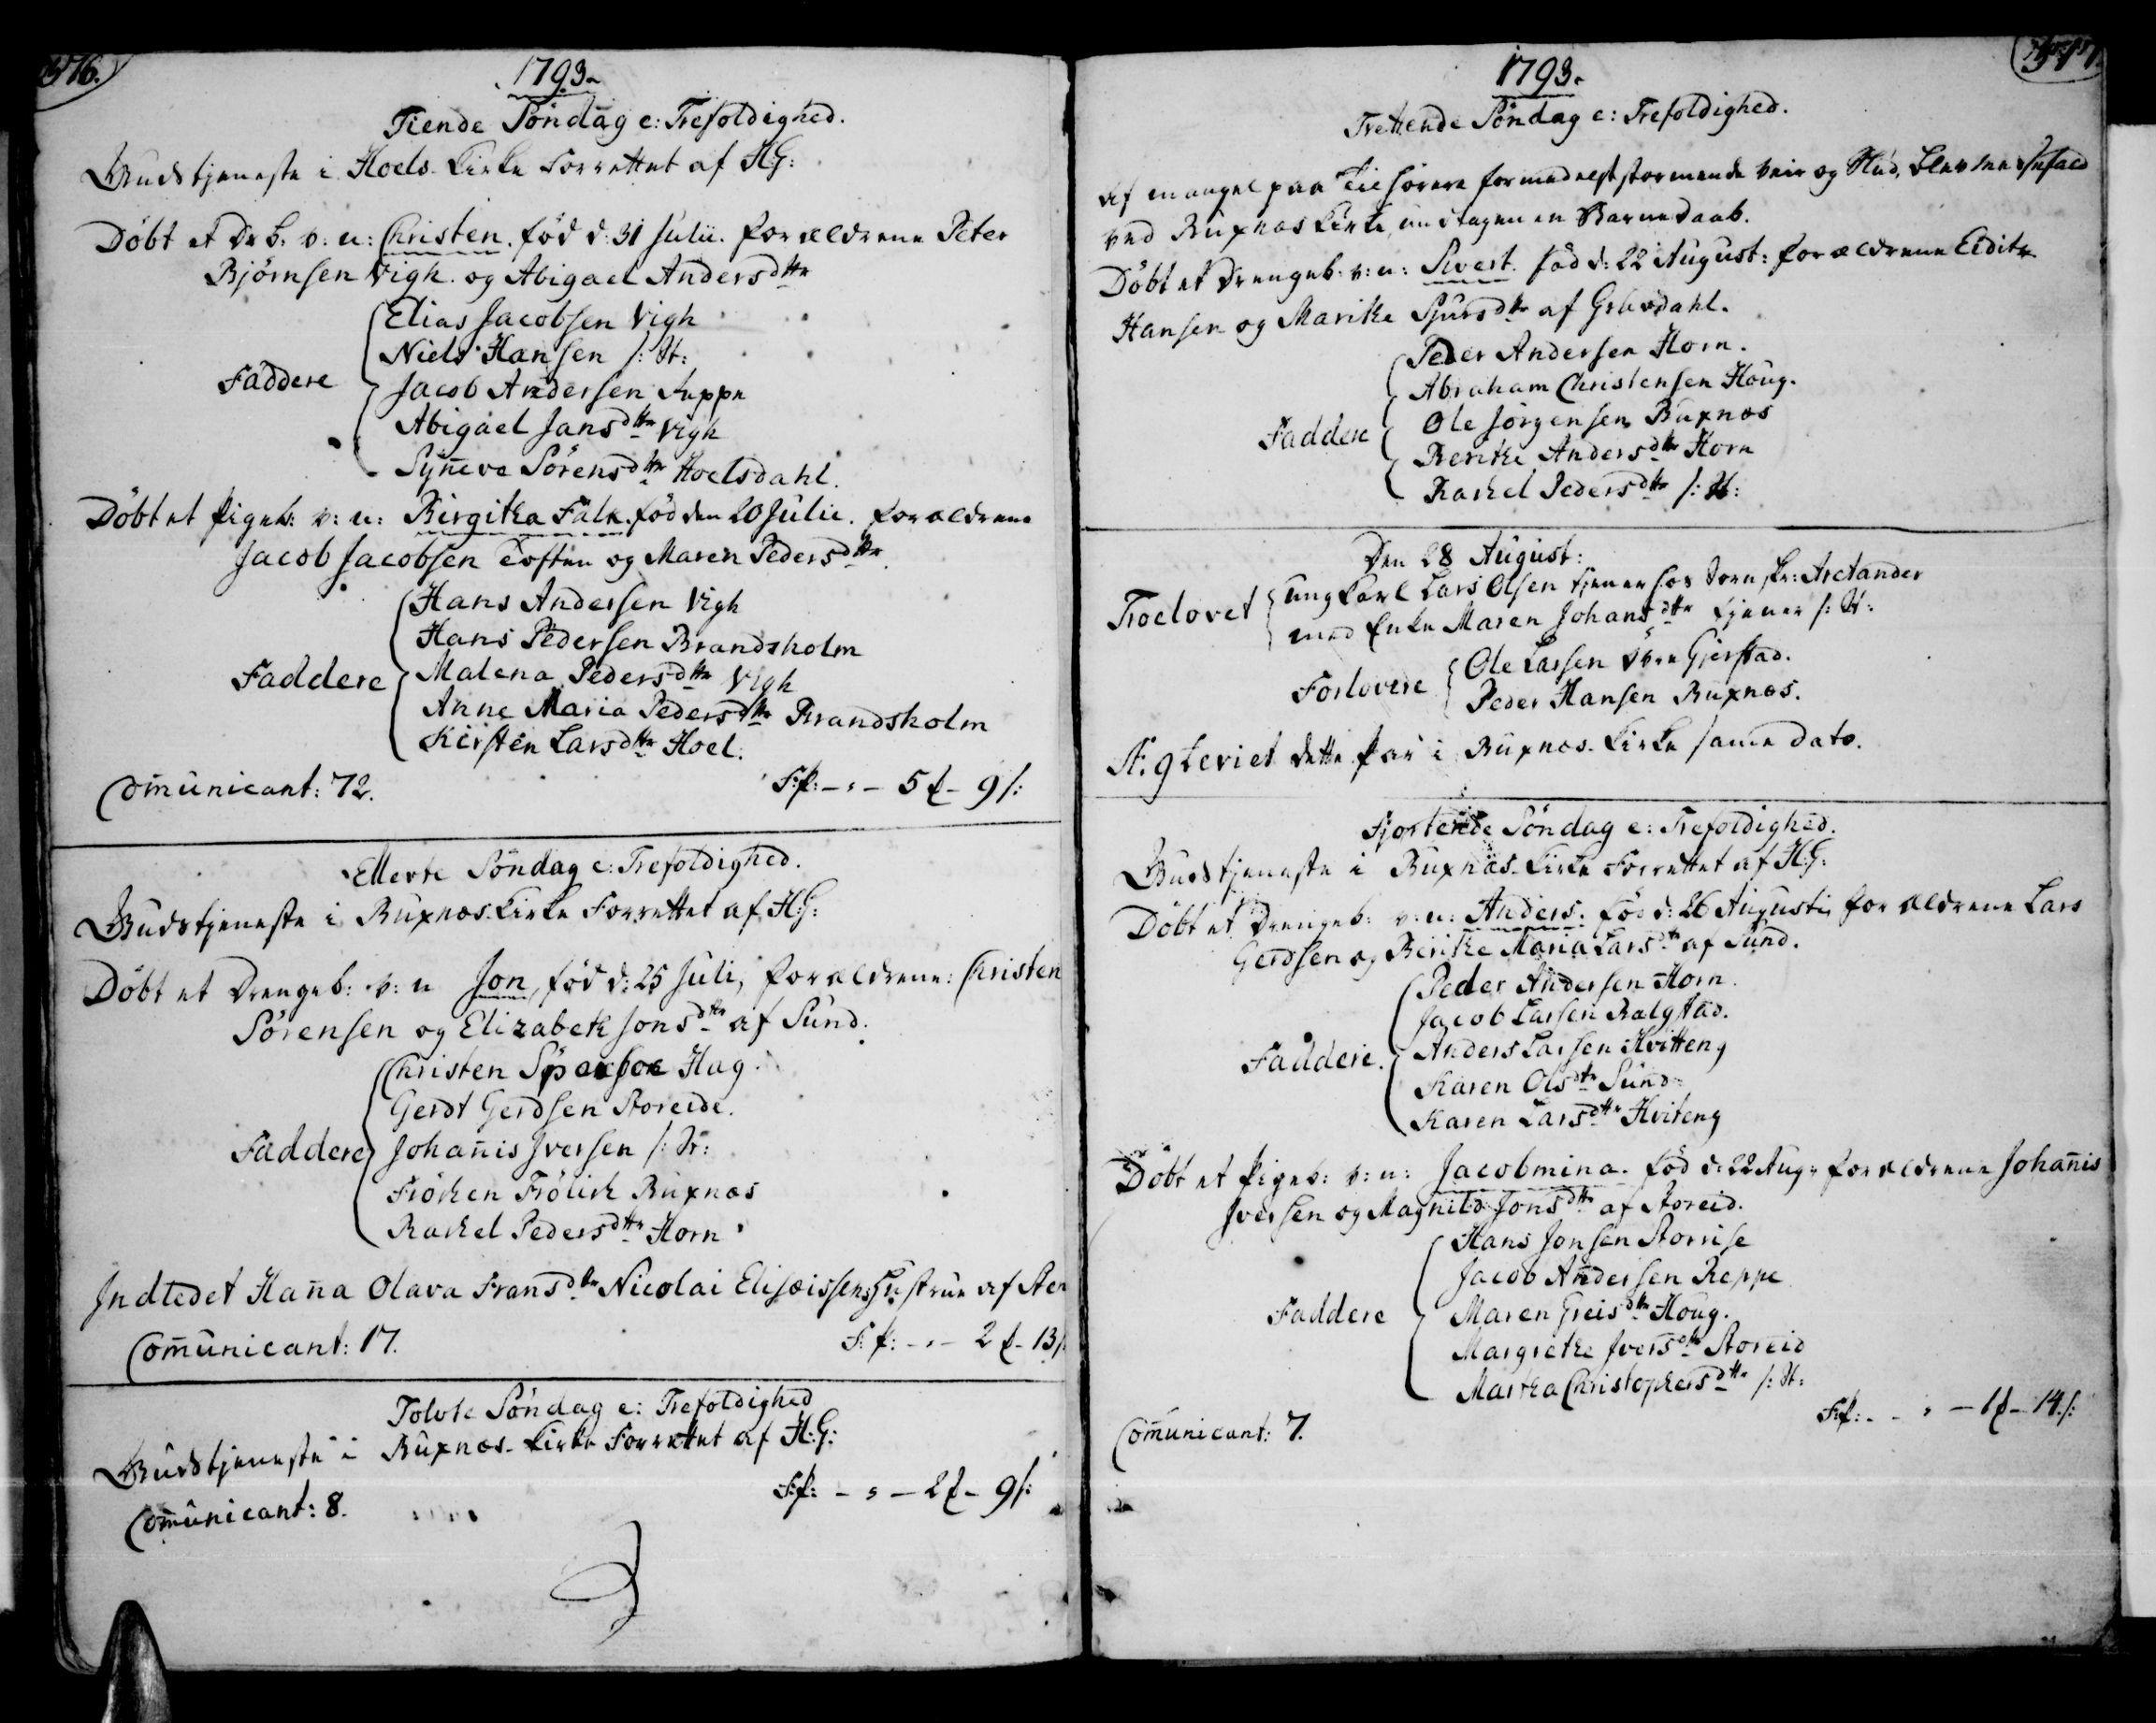 376.
1793.
Tiende Söndag e: Trefoldighed.
Gudstjeneste i Hoels Kirke Forrettet af H:G:
Döbt et Dr. b. v: n: Christen. fød d: 31 Julii. forældrene Peter
Bjørnsen Vigh. og Abigael Andersdttr
Faddere
Elias Jacobsen Vigh
Niels Hansen /: St:
Jacob Andersen Reppe
Abigael Jansdttr Vigh
Syneve Sörensdttr Hoelsdahl.
Döbt et Pigeb: v: n: Birgitha Falk. fød den 20 Julii. forældrene
Jacob Jacobsen Toften og Maren Pedersdttr.
Faddere
Hans Andersen Vigh
Hans Pedersen Brandsholm
Malena Pedersdttr Vigh
Anne Maria Pedersdttr Brandsholm
Kirsten Larsdttr Hoel.
Comunicant: 72.
F:f: - , - 5 f - 9 /:
Ellevte Söndag e: Trefoldighed.
Gudstjeneste i Buxnæs Kirke Forrettet af H:G:
Döbt et Drengeb: v: n Jon, fød d: 25 Juli, forældrene: Christen
Sörensen og Elizabeth Jonsdttr af Sund.
Faddere
Christen Hag.
Gerdt Gerdsen Storeide.
Johanis Iversen /: St:
Fröken Frölich Buxnæs
Rachel Pedersdttr Horn
Indledet Hana Olava Fransdttr Nicolai Elisæissens Hustrue af
Comunicant: 17.
F:f: - , - 2 f - 13/:
Tolvte Söndag e: Trefoldighed
Gudstjeneste i Buxnæs Kirke Forrettet af H:G:
Comunicant: 8.
F:f: - , - 2 f - 9/:
377
1793.
Trettende Söndag e: Trefoldighed.
Af mangel paa Tilhörere formedelst stormende Veir og
ved Buxnæs Kirke, undtagen en Barnedaab.
Döbt et Drengeb: v: n: Sivert. fød d: 22 August: forældrene Eidit
Hansen og Marithe Sjursdttr af Gravdahl.
Faddere
Peder Andersen Horn.
Abraham Christensen Houg.
Ole Jörgensen Buxnæs
Berithe Andersdttr Horn
Rachel Pedersdttr /: St:
Den 28 August:
Troelovet
ungkarl Lars Olsen tjener hos Soren skr: Arctander
med Enke Maren Johansdttr tjener /: St:
Forlovere
Ole Larsen Gjerstad.
Peder Hansen Buxnæs.
N: 9 Ceviet dette Par i Buxnæs Kirke same dato.
Fjortende Söndag e: Trefoldighed.
Gudstjeneste i Buxnæs Kirke Forrettet af H:G:
Döbt et Drengeb: v: n: Anders. fød d: 26 Augusti, forældrene Lars
Gerdsen og Berithe Maria Larsdttr af Sund.
Faddere.
Peder Andersen Horn.
Jacob Larsen Ralgstad.
Anders Larsen Hvitteng
Karen Olsdttr Sund
Karen Larsdttr Hviteng
Döbt et Pigeb: v: n: Jacobmina. fød d: 22 Aug: forældrene Johanis
Iversen og Magnild Jonsdttr af Storeid.
Faddere
Hans Jonsen Storeise
Jacob Andersen Reppe
Maren Greisdttr Houg.
Margrethe Iversdttr Storeid
Martha Christophersdttr /: St:
Comunicant: 7.
F:f: - - , - 1 f - 14 /: